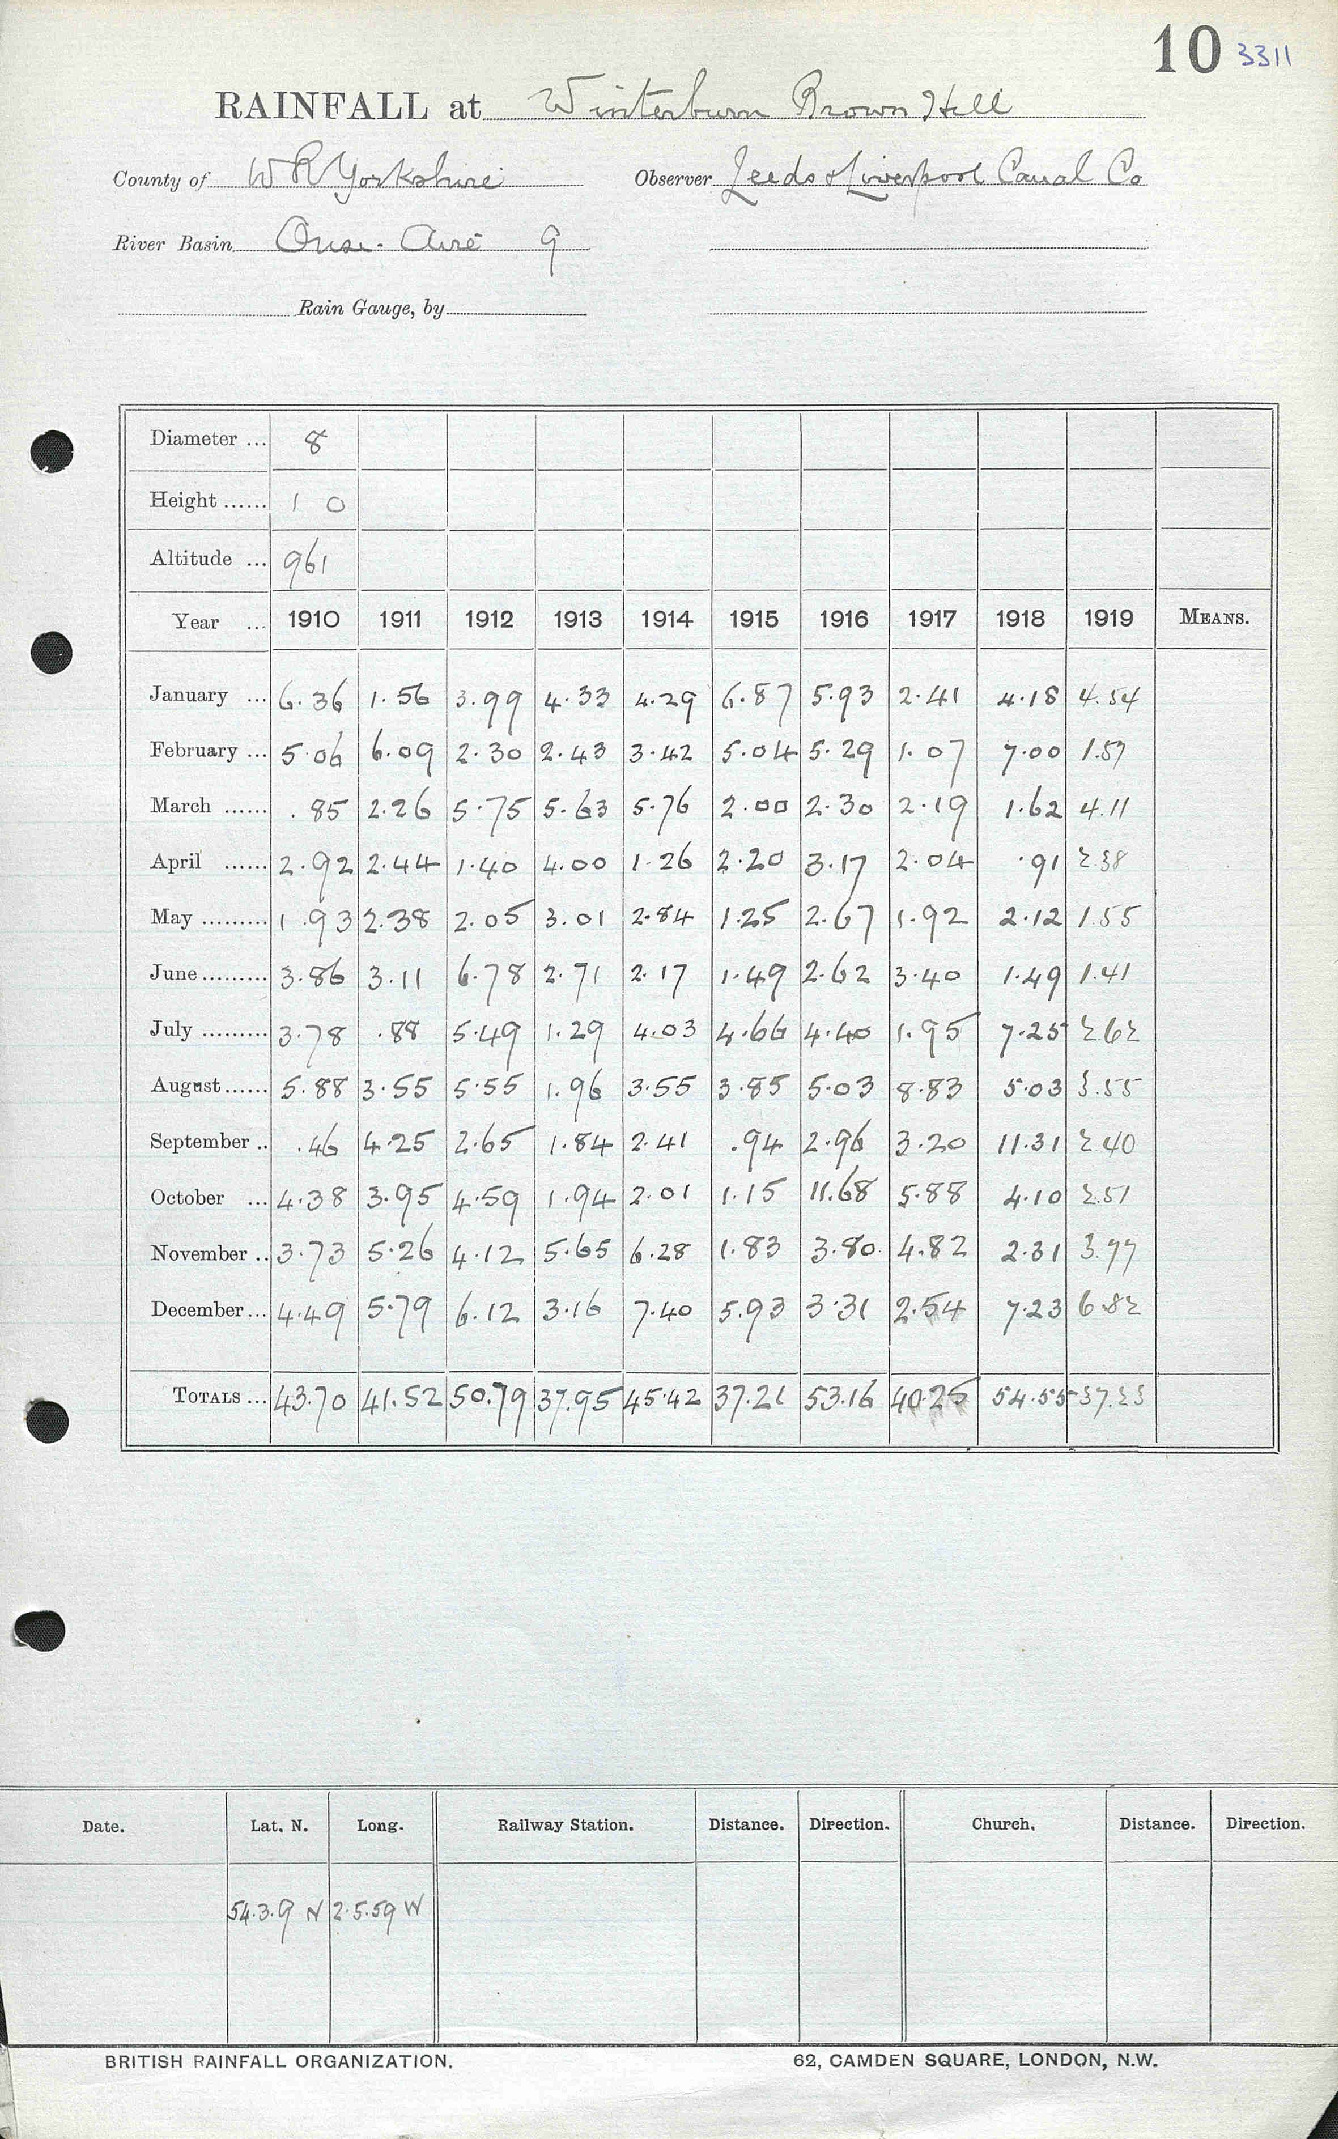 10 3311
RAINFALL at Winterburn Brown Hill
County of W R Yorkshire Observer Leeds & Liverpool Canal Co
River Basin Ouse - Aire 9
Rain Gauge, by
Diameter ... 8
Height ...... 1 0
Altitude ... 961
Year ... 1910 1911 1912 1913 1914 1915 1916 1917 1918 1919 MEANS.
January ... 6.36 1.56 3.99 4.33 4.29 6.87 5.93 2.41 4.18 4.54
February ... 5.06 6.09 2.30 2.43 3.42 5.04 5.29 1.07 7.00 1.57
March ...... .85 2.26 5.75 5.63 5.76 2.00 2.30 2.19 1.62 4.11
April ...... 2.92 2.44 1.40 4.00 1.26 2.20 3.17 2.04 .91 2.38
May ......... 1.93 2.38 2.05 3.01 2.84 1.25 2.67 1.92 2.12 1.55
June ......... 3.86 3.11 6.78 2.71 2.17 1.49 2.62 3.40 1.49 1.41
July ......... 3.78 .88 5.49 1.29 4.03 4.66 4.40 1.95 7.25 2.62
August ...... 5.88 3.55 5.55 1.96 3.55 3.85 5.03 8.83 5.03 3.55
September .. .46 4.25 2.65 1.84 2.41 .94 2.96 3.20 11.31 2.40
October ... 4.38 3.95 4.59 1.94 2.01 1.15 11.68 5.88 4.10 2.51
November .. 3.73 5.26 4.12 5.65 6.28 1.83 3.80 4.82 2.31 3.77
December ... 4.49 5.79 6.12 3.16 7.40 5.93 3.31 2.54 7.23 6.82
TOTALS ... 43.70 41.52 50.79 37.95 45.42 37.21 53.16 40.25 54.55 37.23
Date. Lat. N. Long. Railway Station. Distance. Direction. Church. Distance. Direction.
54.3.9 N 2.5.59 W
BRITISH RAINFALL ORGANIZATION. 62, CAMDEN SQUARE, LONDON, N.W.